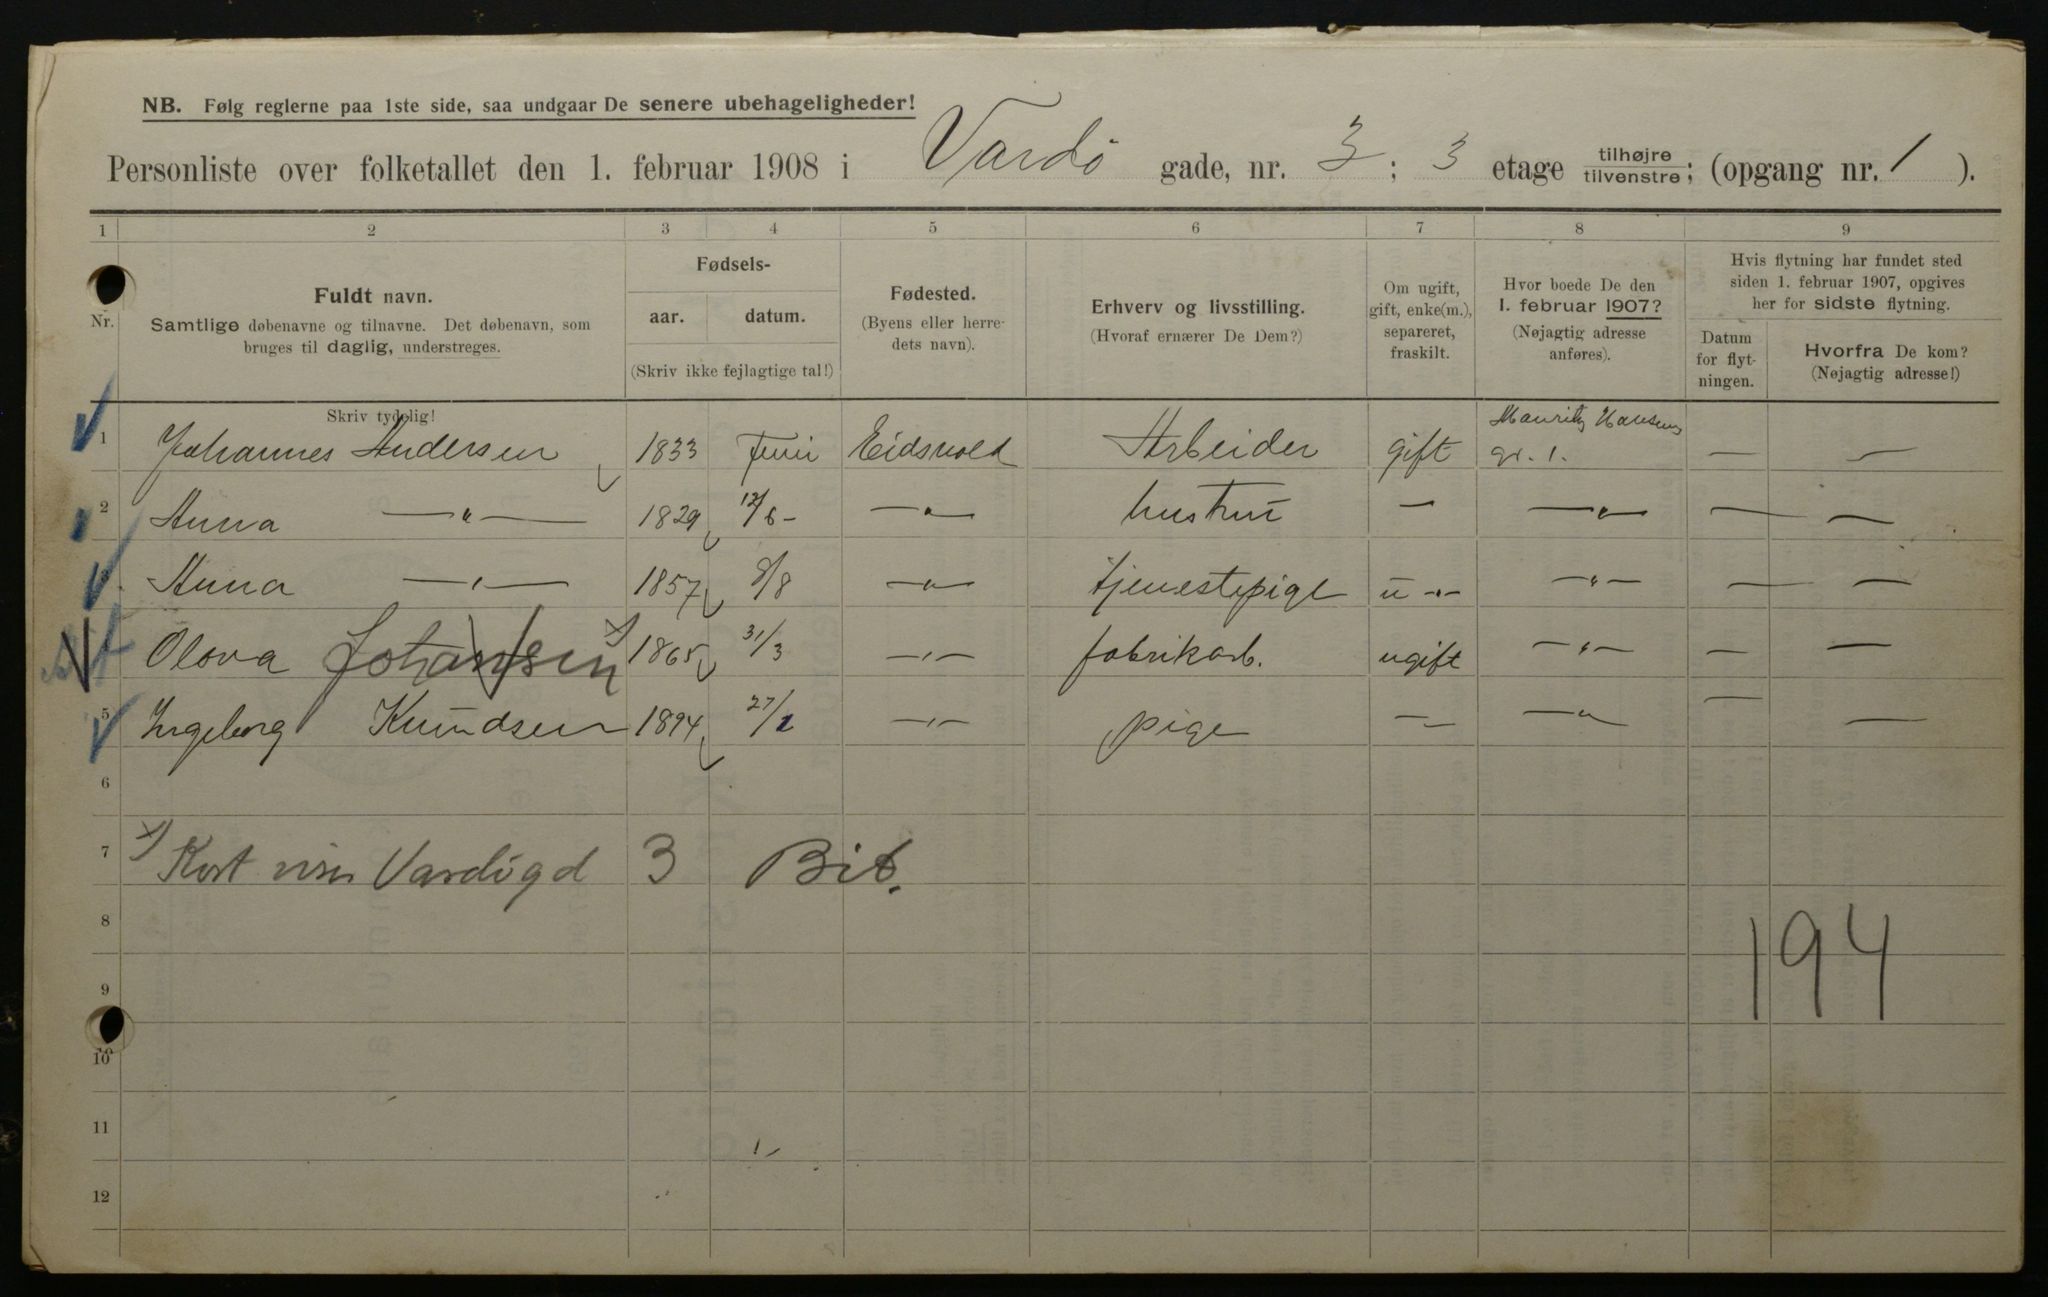 NB. Følg reglerne paa 1ste side, saa undgaar De senere ubehageligheder!
Personliste over folketallet den 1. februar 1908 i Vardö gade, nr. 3; 3 etage tilhøjre tilvenstre; (opgang nr. 1).
1 2 3 4 5 6 7 8 9
Nr.
Fuldt navn.
Samtlige døbenavne og tilnavne. Det døbenavn, som
bruges til daglig, understreges.
Skriv tydelig!
Fødsels-
aar. datum.
(Skriv ikke fejlagtige tal!)
Fødested.
(Byens eller herre-
dets navn).
Erhverv og livsstilling.
(Hvoraf ernærer De Dem?)
Om ugift,
gift, enke(m.),
separeret,
fraskilt.
Hvor boede De den
1. februar 1907?
(Nøjagtig adresse
anføres).
Hvis flytning har fundet sted
siden 1. februar 1907, opgives
her for sidste flytning.
Datum
for flyt-
ningen.
Hvorfra De kom?
(Nøjagtig adresse!)
1 Johannes Andersen 1833 Juni Eidsvold Arbeider gift Mauritz Hansens gt. 1. — —
2 Anna —"— 1829 12/6 - —"— hustru — —"— — —
3 Anna —"— 1857 8/8 —"— tjenestepige u -"- —"— — —
Olova Johansen x) 1865 31/3 —"— fabrikarb. ugift —"— — —
5 Ingeborg Knudsen 1894 27/1 —"— pige — —"— — —
6
7 x) Kort viser Vardögd 3 Bib.
8
194
9
10
11
12